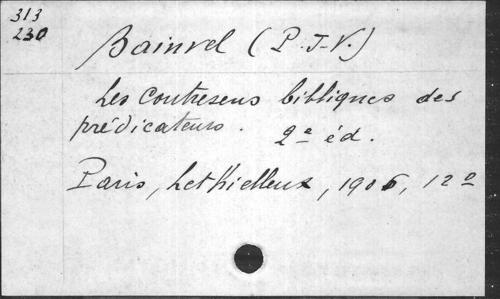 313
230
Bainvel (P. J-V.)
Les Contresens bibliques des
prédicateurs. 2e éd.
Paris, Lethielleux, 1906, 12º